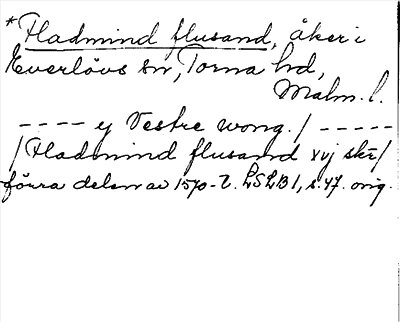 *Hadmind flusand, åker i
Everlövs sn, Torna hd,
Malm. l.
---- ey Vestre wong. / -----
/ Hadmind flusand xvj skr /
förra delen av 1570-t. LSLB 1, s. 47. orig.